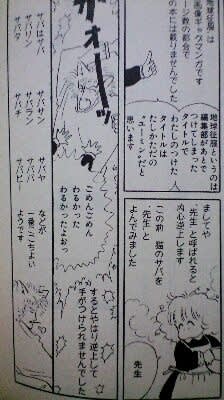 地球征服
ギャグマンガです
ページ数の都合で
の本には載りませんでした
地球征服というのは
編集部があとで
つけてしまった
タイトルで
わたしのつけた
タイトルは
たしかただの
思います
ましてや
“先生”と呼ばれると
内心逆上します
この前 猫のサバを
“先生”と
よんでみました
先生
ガオーッ
ごめんごめん
わるかった
わるかったよおっ
するとやはり逆上して
手がつけられませんでした
サバはサバ
サバリ
サバタ
サバサン
サバラ
サバチ
サバヤ
サバビ
などが
一番ここちよい
ようです